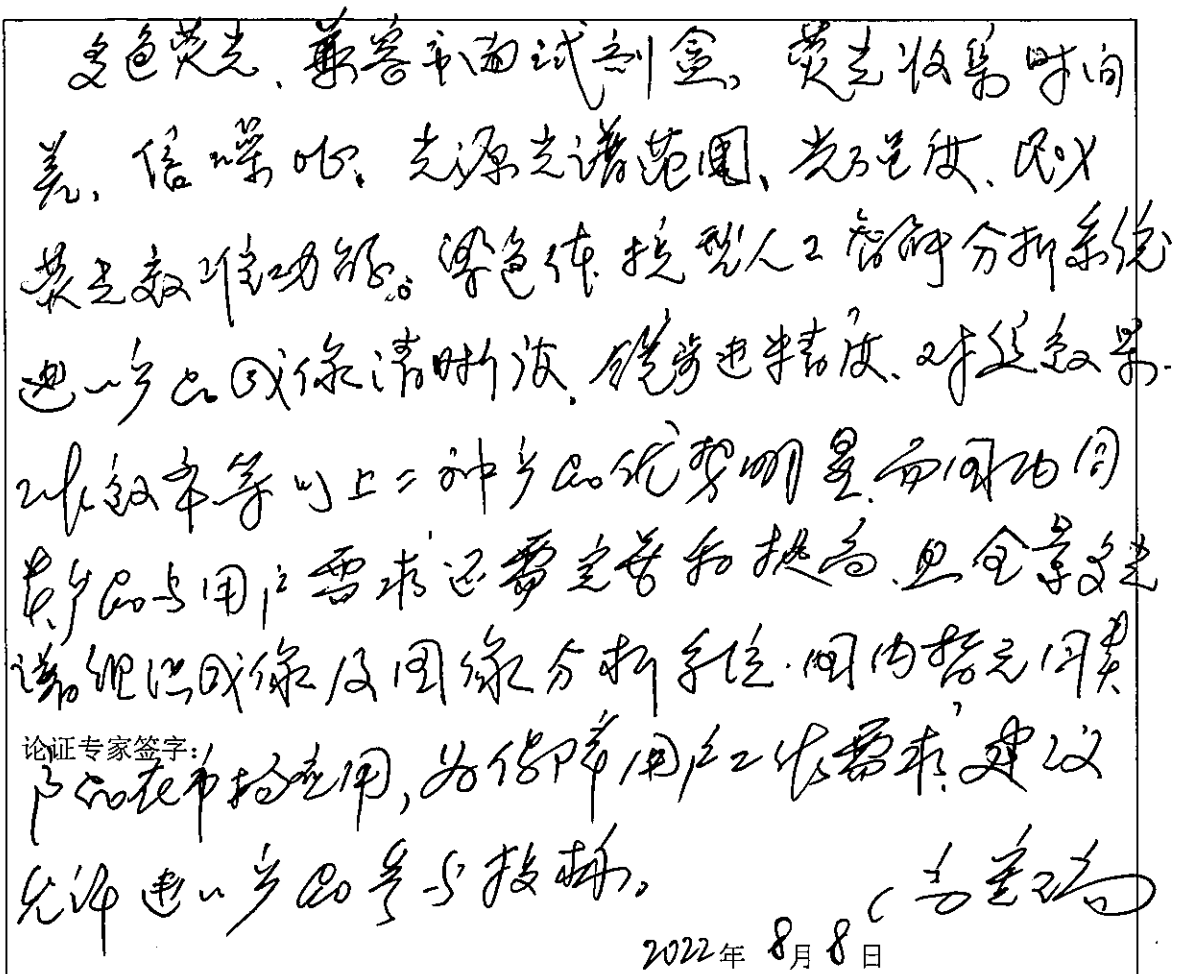 多色荧光、兼容市面试剂盒。荧光收集时间
差、信噪比、光源光谱范围、光强度、以及
荧光校准功能。染色体核型人工智能分析系统
进口产品成像清晰度、镜旁进样精度、对焦效果、
扫描效率等以上二种产品优势明显,而国内同
类产品与用户需求还需完善和提高,且全景多光
谱组织成像及图像分析系统,国内暂无同类
论证专家签字:
产品在市场应用,为保障用户工作需求,建议
允许进口产品参与投标。
2022年 8月 8日